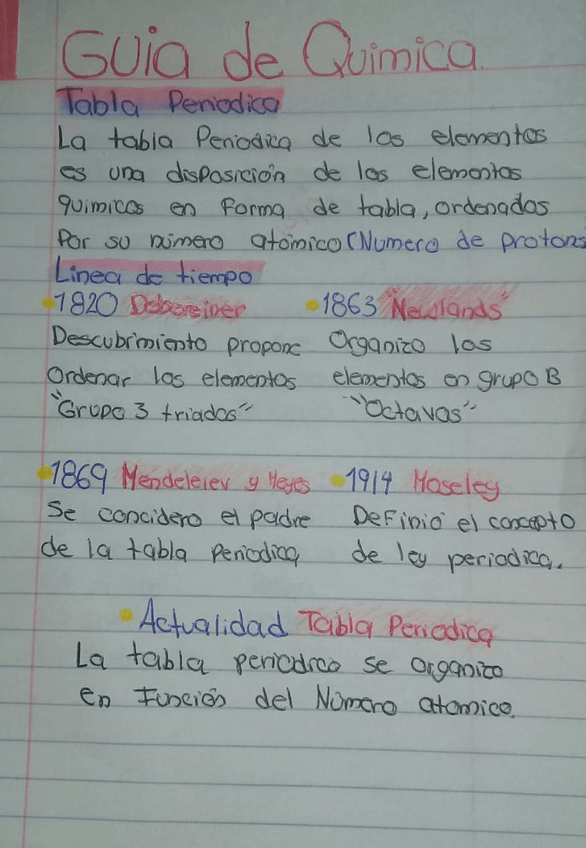 Guia de Quimica
Tabla Periodica
La tabla Periodica de los elementos
es una disposición de los elementos
quimicos en forma de tabla, ordenados
Por su número atómico (Numero de protons
Linea de tiempo
1820 Debereiner
Descubrimiento propone
Ordenar los elementos
"Grupo 3 triadas"
1863 "Newlands"
Organizo los
elementos en grupo B
"Octavas"
1869 Mendeleiev y Meyes
Se concidero el padre
de la tabla periodica
1914 Moseley
Definió el concepto
de ley periodica.
Actualidad Tabla Periodica
La tabla periodica se organizo
en Función del Número atomico.